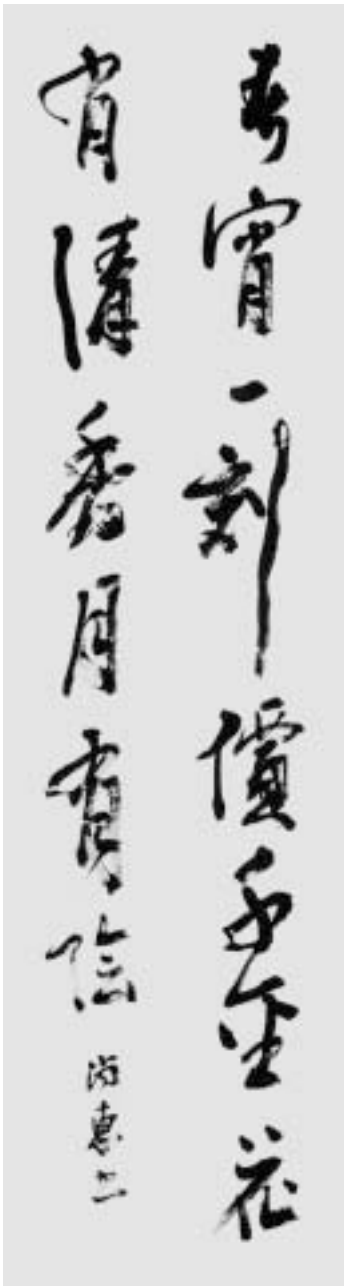 春宵一刻價千金花
有清香月有陰